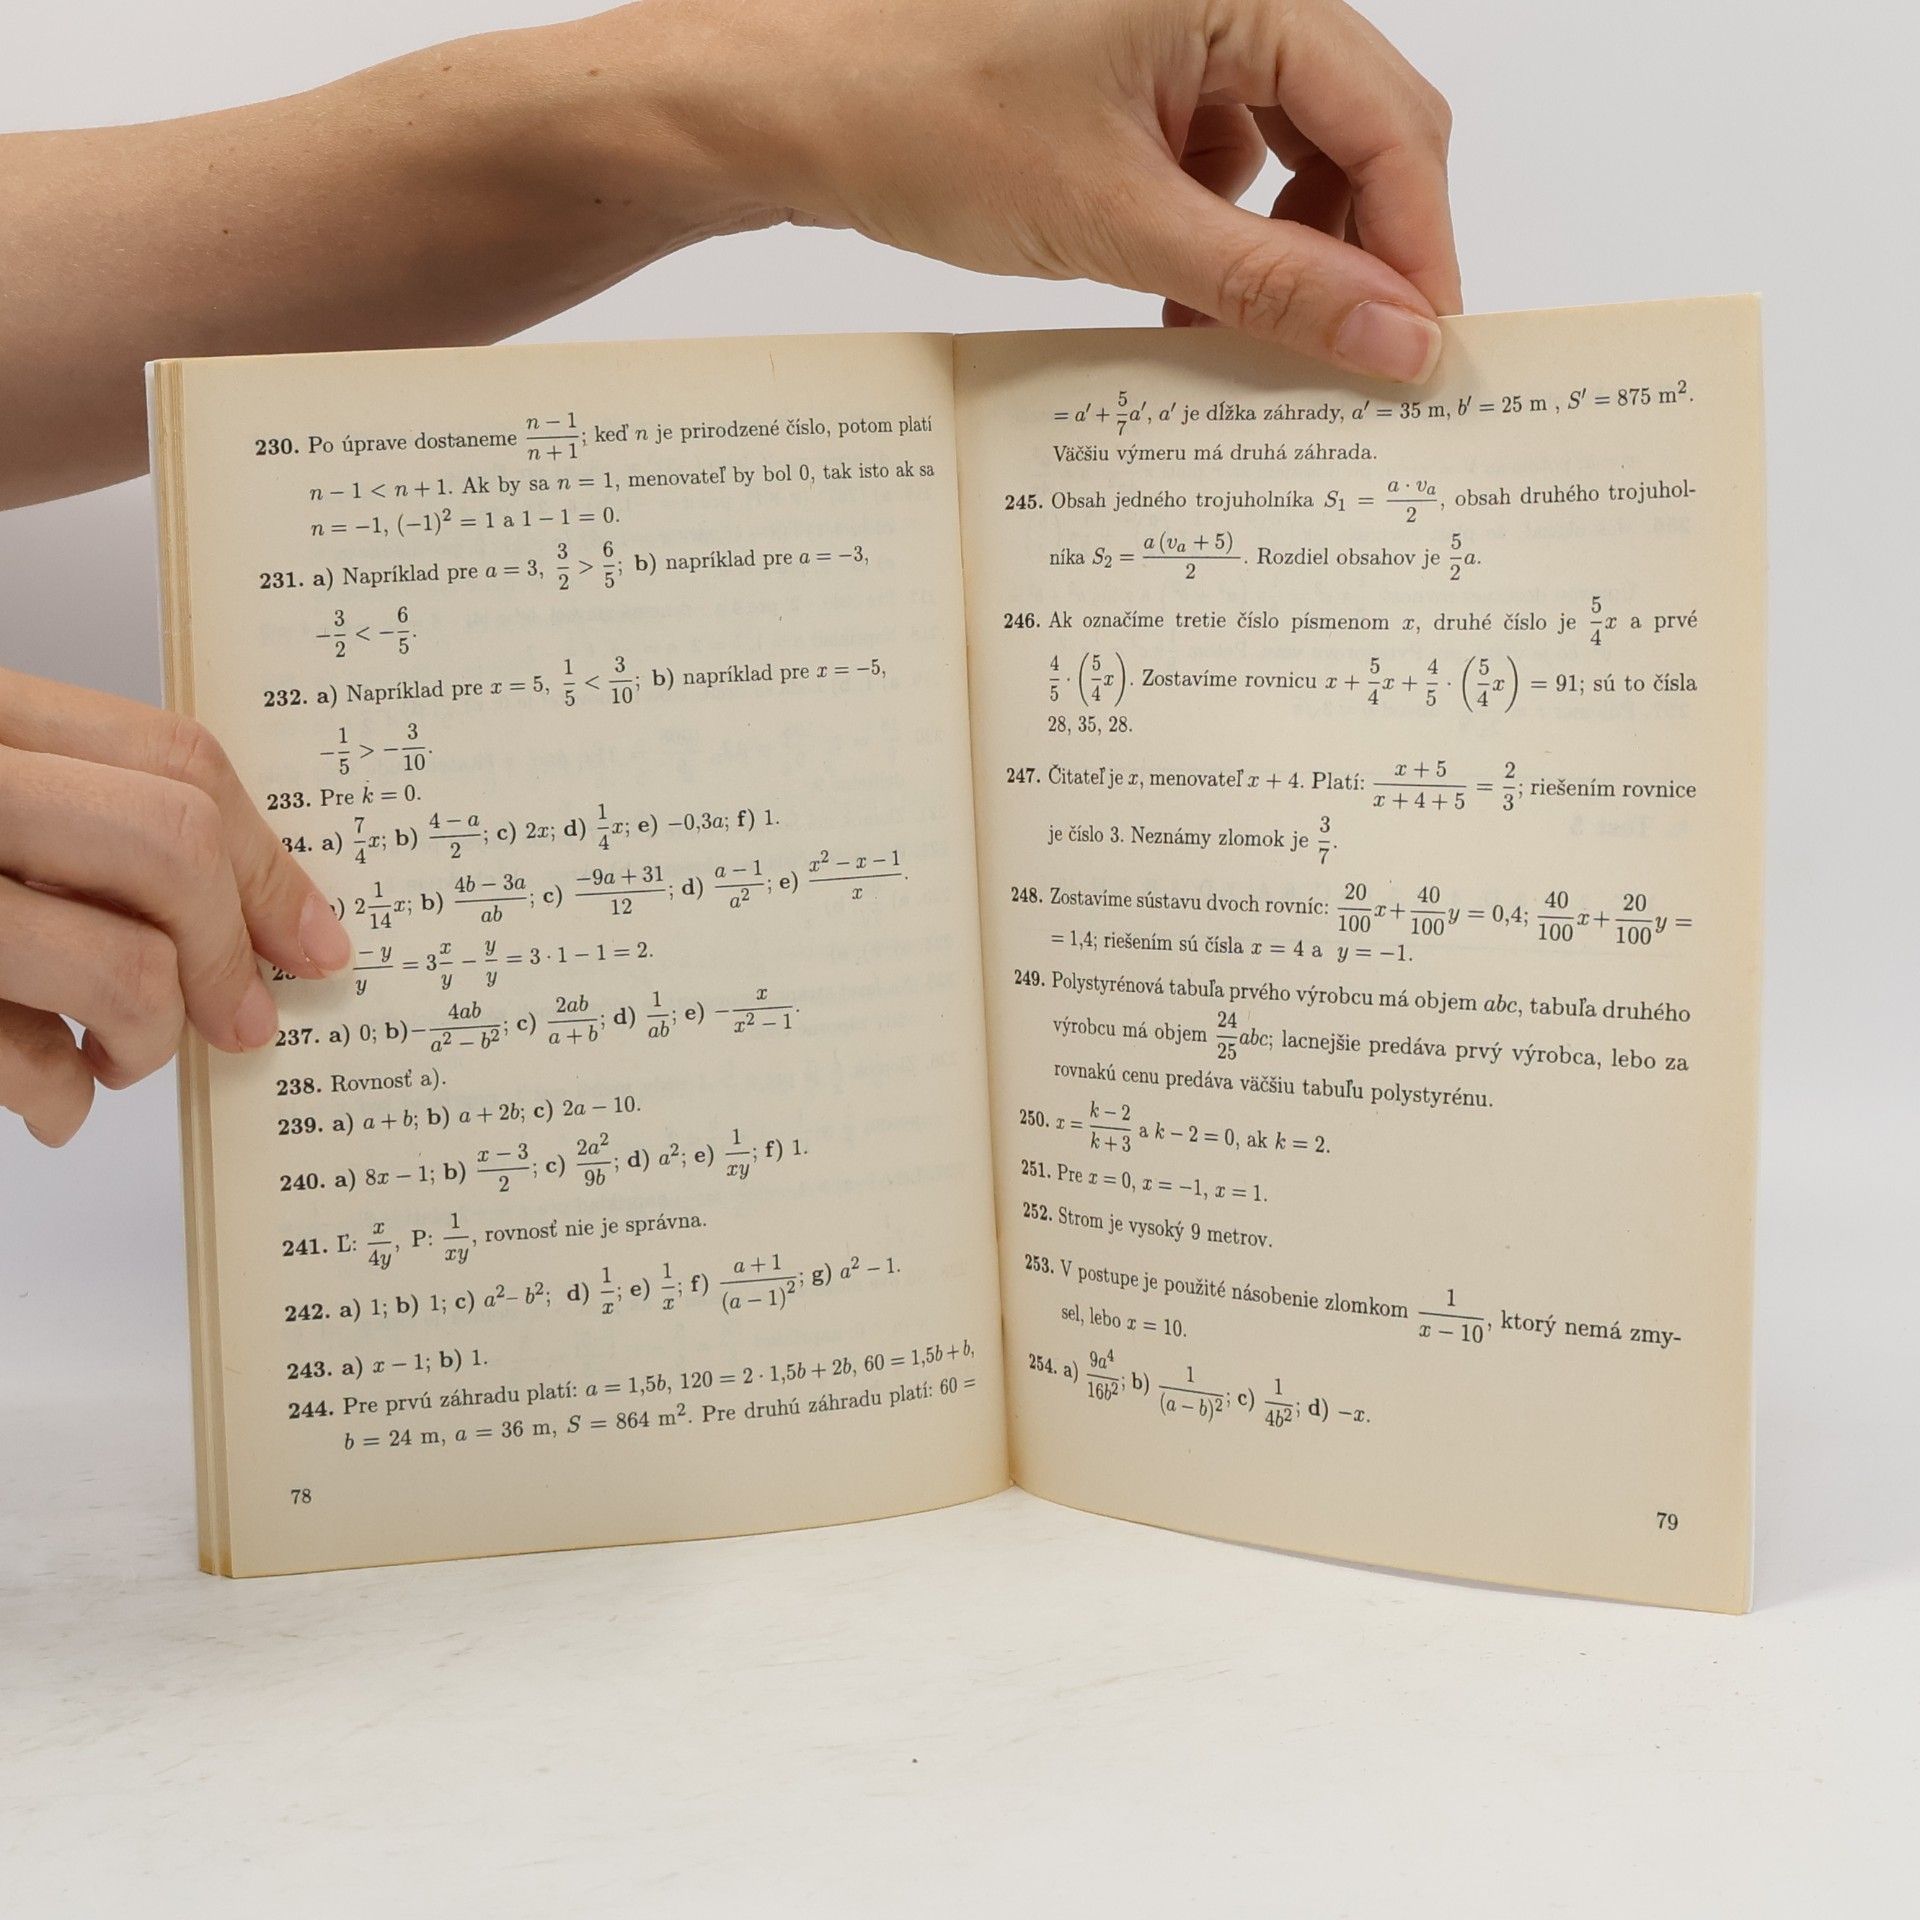 230. Po úprave dostaneme (n − 1)/(n + 1); keď n je prirodzené číslo, potom platí
n − 1 < n + 1. Ak by sa n = 1, menovateľ by bol 0, tak isto ak sa
n = −1, (−1)² = 1 a 1 − 1 = 0.
231. a) Napríklad pre a = 3, 3/2 > 6/5; b) napríklad pre a = −3,
−3/2 < −6/5.
232. a) Napríklad pre x = 5, 1/5 < 3/10; b) napríklad pre x = −5,
−1/5 > −3/10.
233. Pre k = 0.
34. a) 7/4 x; b) (4 − a)/2; c) 2x; d) 1/4 x; e) −0,3a; f) 1.
) 2 1/14 x; b) (4b − 3a)/ab; c) (−9a + 31)/12; d) (a − 1)/a²; e) (x² − x − 1)/x.
− y/y = 3 x/y − y/y = 3 · 1 − 1 = 2.
237. a) 0; b) −4ab/(a² − b²); c) 2ab/(a + b); d) 1/ab; e) −x/(x² − 1).
238. Rovnosť a).
239. a) a + b; b) a + 2b; c) 2a − 10.
240. a) 8x − 1; b) (x − 3)/2; c) 2a²/9b; d) a²; e) 1/xy; f) 1.
241. Ľ: x/4y, P: 1/xy, rovnosť nie je správna.
242. a) 1; b) 1; c) a² − b²; d) 1/x; e) 1/x; f) (a + 1)/(a − 1)²; g) a² − 1.
243. a) x − 1; b) 1.
244. Pre prvú záhradu platí: a = 1,5b, 120 = 2 · 1,5b + 2b, 60 = 1,5b + b,
b = 24 m, a = 36 m, S = 864 m². Pre druhú záhradu platí: 60 =
78
= a′ + 5/7 a′, a′ je dĺžka záhrady, a′ = 35 m, b′ = 25 m , S′ = 875 m².
Väčšiu výmeru má druhá záhrada.
245. Obsah jedného trojuholníka S₁ = (a · vₐ)/2, obsah druhého trojuhol-
níka S₂ = a (vₐ + 5)/2. Rozdiel obsahov je 5/2 a.
246. Ak označíme tretie číslo písmenom x, druhé číslo je 5/4 x a prvé
4/5 · (5/4 x). Zostavíme rovnicu x + 5/4 x + 4/5 · (5/4 x) = 91; sú to čísla
28, 35, 28.
247. Čitateľ je x, menovateľ x + 4. Platí: (x + 5)/(x + 4 + 5) = 2/3; riešením rovnice
je číslo 3. Neznámy zlomok je 3/7.
248. Zostavíme sústavu dvoch rovníc: 20/100 x + 40/100 y = 0,4; 40/100 x + 20/100 y =
= 1,4; riešením sú čísla x = 4 a y = −1.
249. Polystyrénová tabuľa prvého výrobcu má objem abc, tabuľa druhého
výrobcu má objem 24/25 abc; lacnejšie predáva prvý výrobca, lebo za
rovnakú cenu predáva väčšiu tabuľu polystyrénu.
250. x = (k − 2)/(k + 3) a k − 2 = 0, ak k = 2.
251. Pre x = 0, x = −1, x = 1.
252. Strom je vysoký 9 metrov.
253. V postupe je použité násobenie zlomkom 1/(x − 10), ktorý nemá zmy-
sel, lebo x = 10.
254. a) 9a⁴/16b²; b) 1/(a − b)²; c) 1/4b²; d) −x.
79